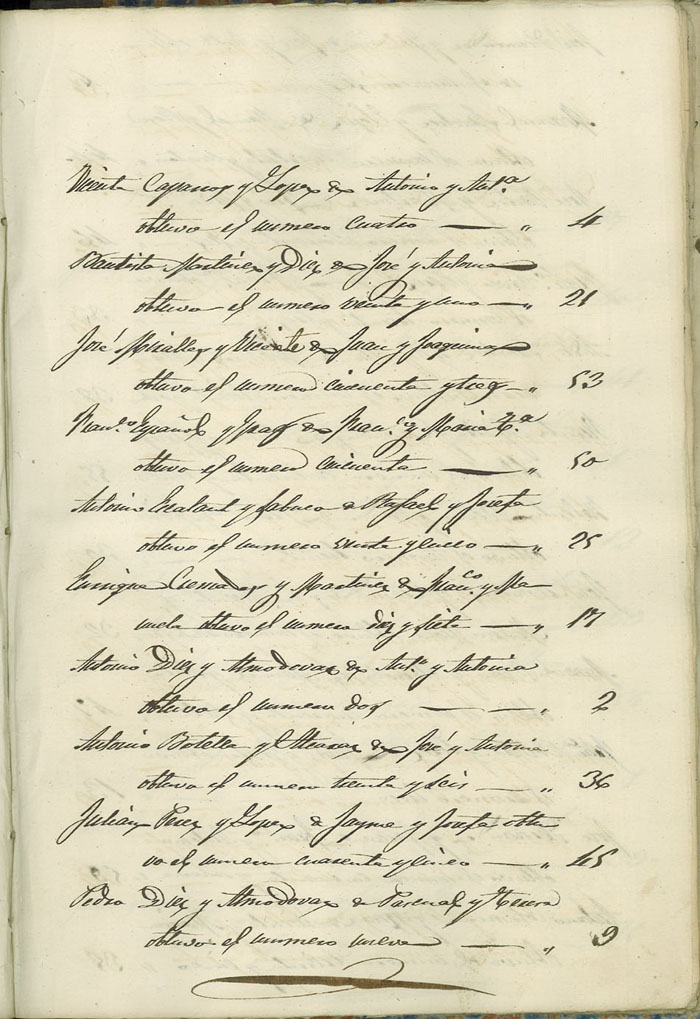 Vicente Capanor y Lopez de Antonio y Ant.ª
obtuvo el numero cuatro — " 4
Bautista Martinez y Diez de José y Antonia
obtuvo el numero veinte y uno — " 21
José Miralles y Vicente de Juan y Joaquina
obtuvo el numero cincuenta y tres - " 53
Fran.co Español y de Fran.co y Maria
obtuvo el numero cincuenta — " 50
Antonio y de Rafael y Josefa
obtuvo el numero veinte y cinco — " 25
Enrique y Martinez de Fran.co y Ma
nuela obtuvo el numero diez y siete — " 17
Antonio Diez y Almodovar de Ant.o y Antonia
obtuvo el numero dos — — " 2
Antonio Botella y de José y Antonia
obtuvo el numero treinta y seis — " 36
Julian Perez y Lopez de Jayme y Josefa obtu
vo el numero cuarenta y cinco — " 45
Pedro Diez y Almodovar de Pascual y Teresa
obtuvo el numero nueve — " 9